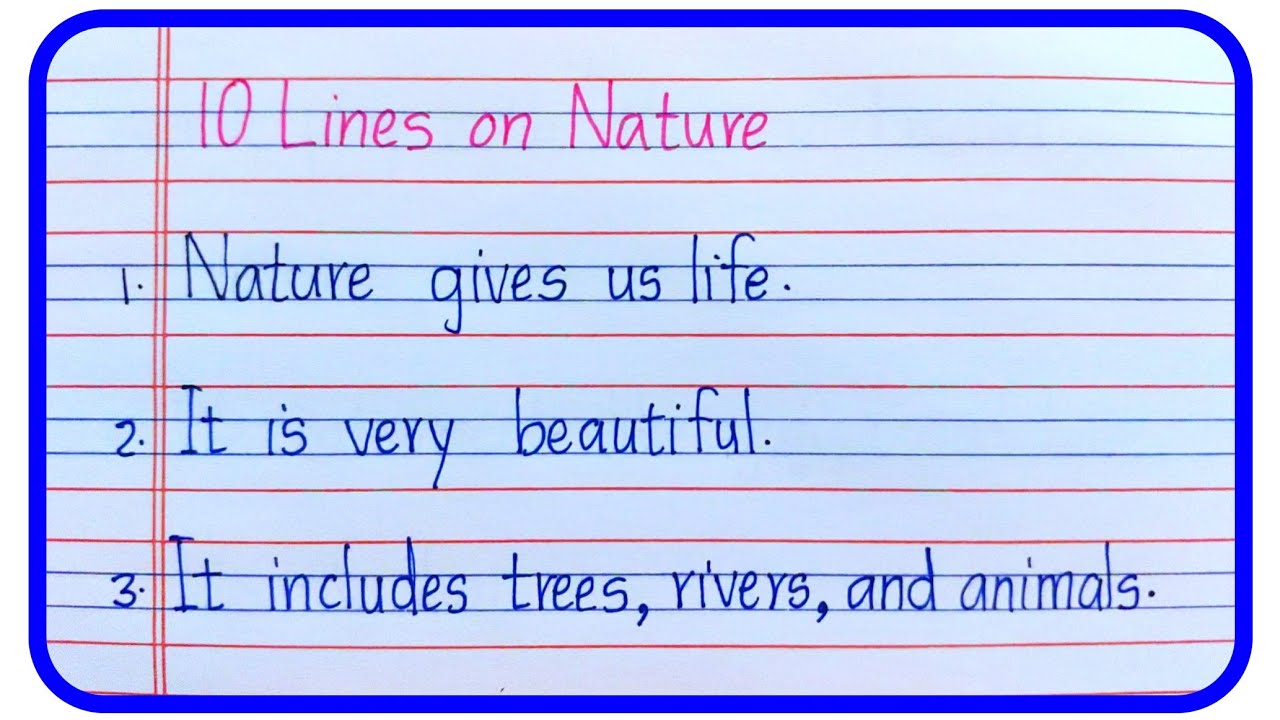 10 Lines on Nature
1. Nature gives us life.
2. It is very beautiful.
3. It includes trees, rivers, and animals.